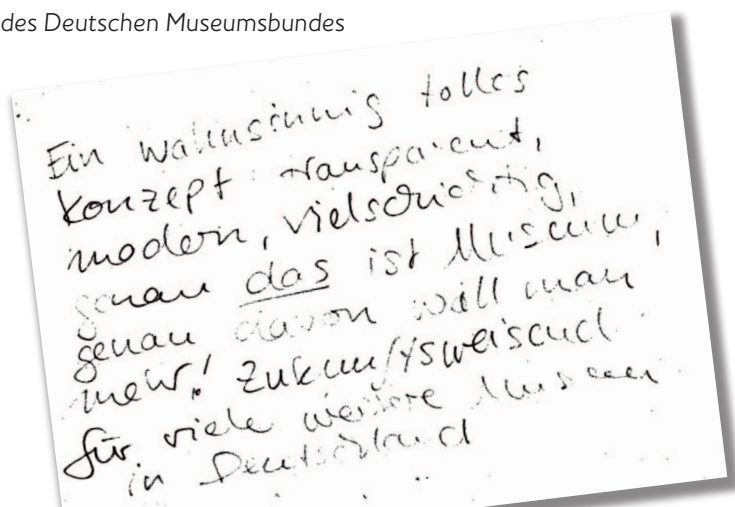 des Deutschen Museumsbundes
Ein wahnsinnig tolles
Konzept: transparent,
modern, vielschichtig,
genau das ist Museum,
genau davon will man
mehr! Zukunftsweisend
für viele weitere Museen
in Deutschland